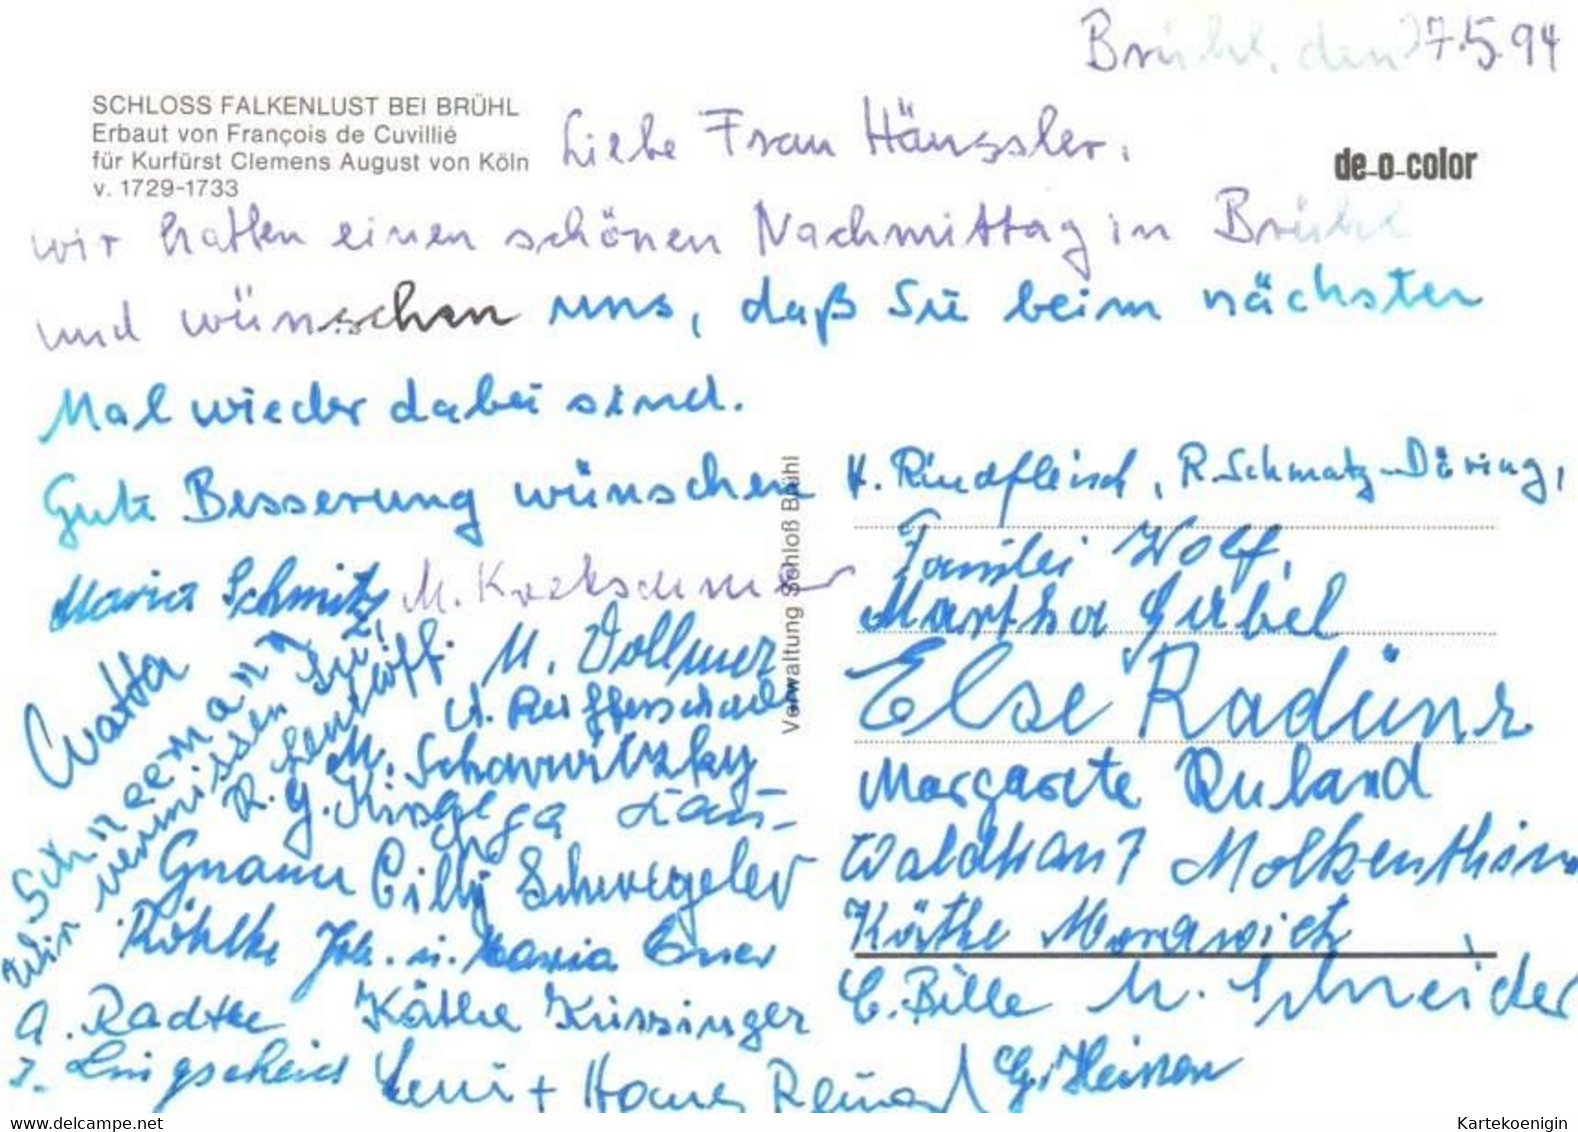 Brühl, den 27.5.94
SCHLOSS FALKENLUST BEI BRÜHL
Erbaut von François de Cuvillié
für Kurfürst Clemens August von Köln
v. 1729-1733
de-o-color
Liebe Frau Häussler,
wir hatten einen schönen Nachmittag in Brühl
und wünschen uns, daß Sie beim nächsten
Mal wieder dabei sind.
Gute Besserung wünschen
H. Rindfleisch, R. Schmatz-Döring,
Familei Wolf,
Maria Schmitz
Martha Gübel
M. Vollmer
Else Radünz
Watta
Schneemann
Wir vermissen Sie!
M. Scharwitzky
Margarete Ruland
Gnann Cilly Schwegeler
Waldhans Molkenthin
Röhlke Joh. u. Maria
Käthe Morawietz
A. Radtke Käthe Krissinger
C. Bille M. Schneider
J. Lingscheid Leni + Hans Reinard
G. Heinen
Verwaltung Schloß Brühl
www.delcampe.net
Kartekoenigin